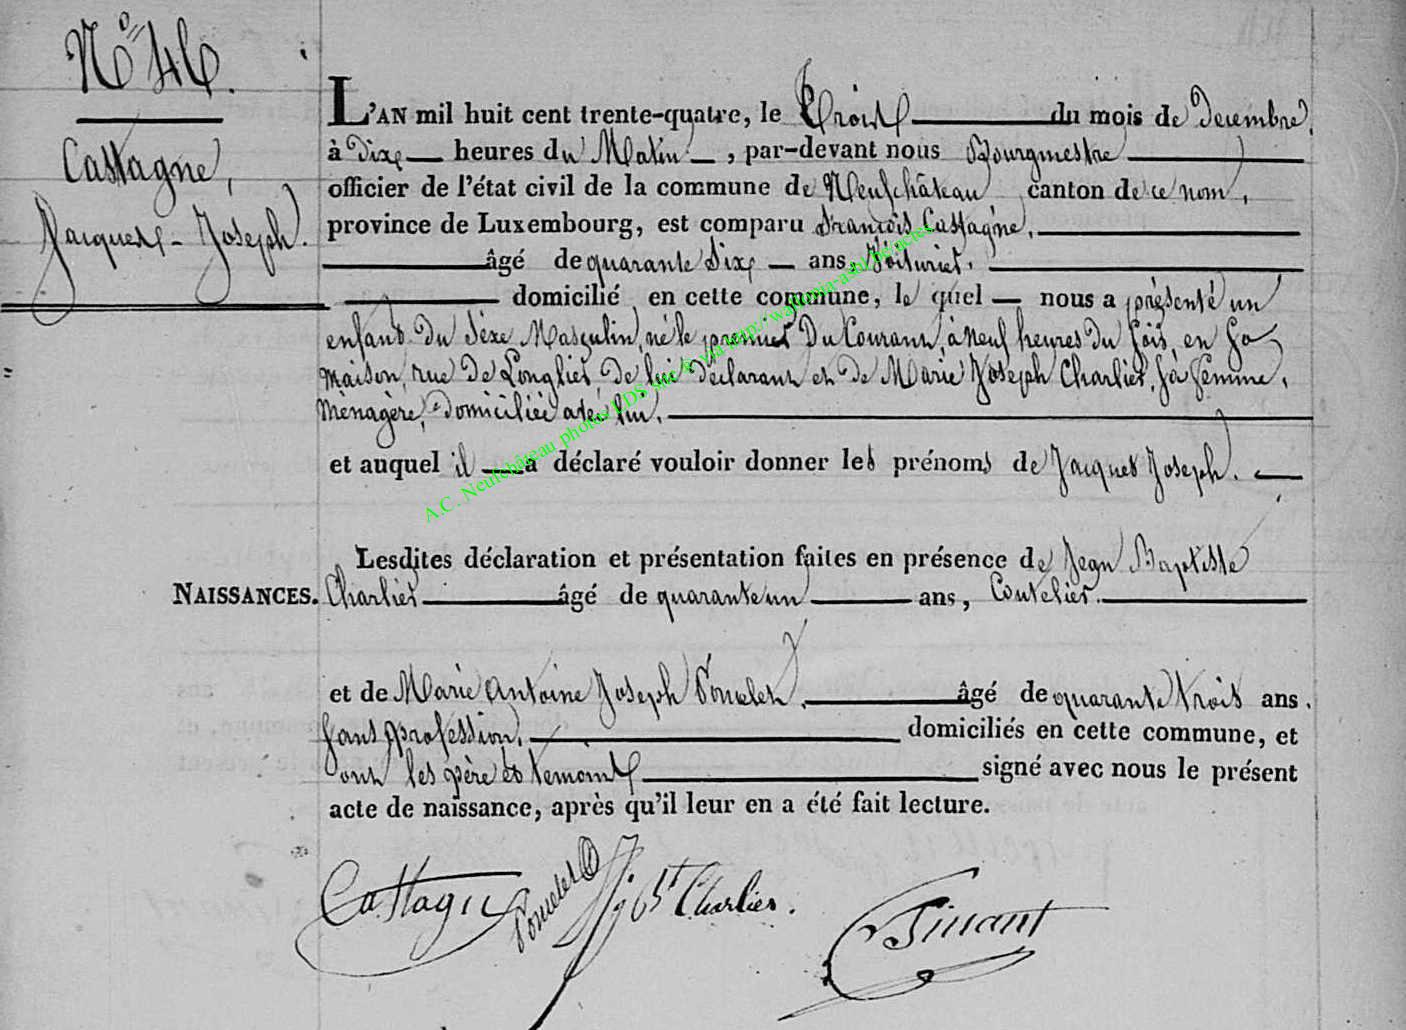 Nº 46.
Castagne,
Jacques-Joseph.
L'AN mil huit cent trente-quatre, le trois du mois de Décembre,
à Dix heures du Matin, par-devant nous Bourgmestre
officier de l'état civil de la commune de Neufchâteau canton de ce nom,
province de Luxembourg, est comparu François Castagne,
âgé de quarante Six ans, Voiturier,
domicilié en cette commune, le quel nous a présenté un
enfant du Sexe Masculin, né le premier Du Courant, à neuf heures du Soir, en Sa
maison, rue de Longlier, de lui déclarant et de Marie Joseph Charlier, Sa femme,
Ménagère, domiciliée avec lui.
et auquel il a déclaré vouloir donner les prénoms de Jacques Joseph.
Lesdites déclaration et présentation faites en présence de Jean Baptiste
NAISSANCES. Charlier âgé de quarante un ans, Coutelier.
et de Marie Antoine Joseph Poncelet, âgé de quarante trois ans.
Sans profession, domiciliés en cette commune, et
ont les père et témoins signé avec nous le présent
acte de naissance, après qu'il leur en a été fait lecture.
Castagne Poncelet J Bst Charlier.
Sinant
A.C. Neufchâteau photos LDS sur © via http://wallonia-asbl.be/actes